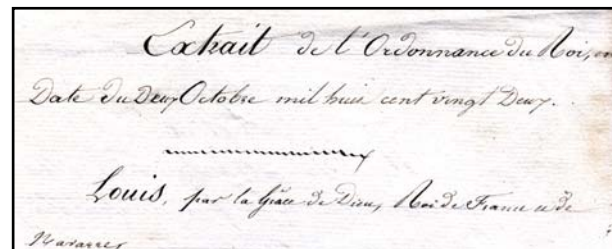 Extrait de l'Ordonnance du Roi, en
Date du Deux Octobre mil huit cent vingt Deux.
Louis, par la Grâce de Dieu, Roi de France et de
Navarre